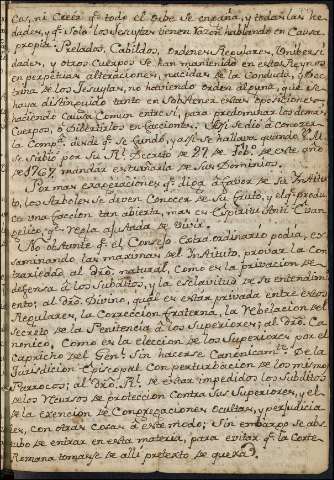 cas, ni Creer q.e todo el Orbe se engaña, y todas las he
dades, y q.e solo los Jesuytas tienen razon hablando en Causa
propia. Prelados, Cabildos, Ordenes Regulares, Universi
dades, y otros Cuerpos se han mantenido en estos Reynos
en perpetuas alteraciones, nacidas de la Conducta, y Doc
trina de los Jesuytas, no haviendo orden alguna, que se
haya distinguido tanto en sobstener estas oposiciones
haciendo Causa Comun entre si, para predominar los demas
Cuerpos, ò dibertirlos en facciones. Assi se diò à Conocer
la Comp.a desde q.e se fundó, y assi se hallava quando V. M.
se sirbió por su R.l Decreto de 27 de Feb.o de este año
de 1767 mandar extrañarla de sus Dominios.
Por mas exageraciones q.e diga à favor de su Institu
to, los Arboles se deven Conocer de su fruto, y el q.e produ
ce una faccion tan abierta, mas es Espiritu Anti Evan
gelico, q.e regla ajustada de Vivir.
No obstante q.e el Consejo Extraordinario podia, ex
aminando las maximas del Instituto, provar la Con
trariedad al dro. natural, Como es la privacion de
defensa à los Subditos, y la esclavitud de su entendimi
ento; al dro. Divino, qual es estar privada entre estos
Regulares, la Correccion fraterna, la Rebelacion del
Secreto de la Penitencia à los Superiores; al dro. Ca
nonico, Como es la eleccion de los Superiores por el
Capricho del Gen.l sin hacerse Canonicam.te De la
Jurisdicion Episcopal Con perturbacion de los mismos
Parrocos; al dro. R.l de estar impedidos los Subditos
de los recursos de proteccion Contra sus Superiores, y el
de la exencion de Congregaciones ocultas, y perjudicia
les, con otras Cosas à este modo; Sin embargo se abs
tubo de entrar en esta materia, para evitar q.e la Corte
Romana tomase de alli pretexto de quexa.